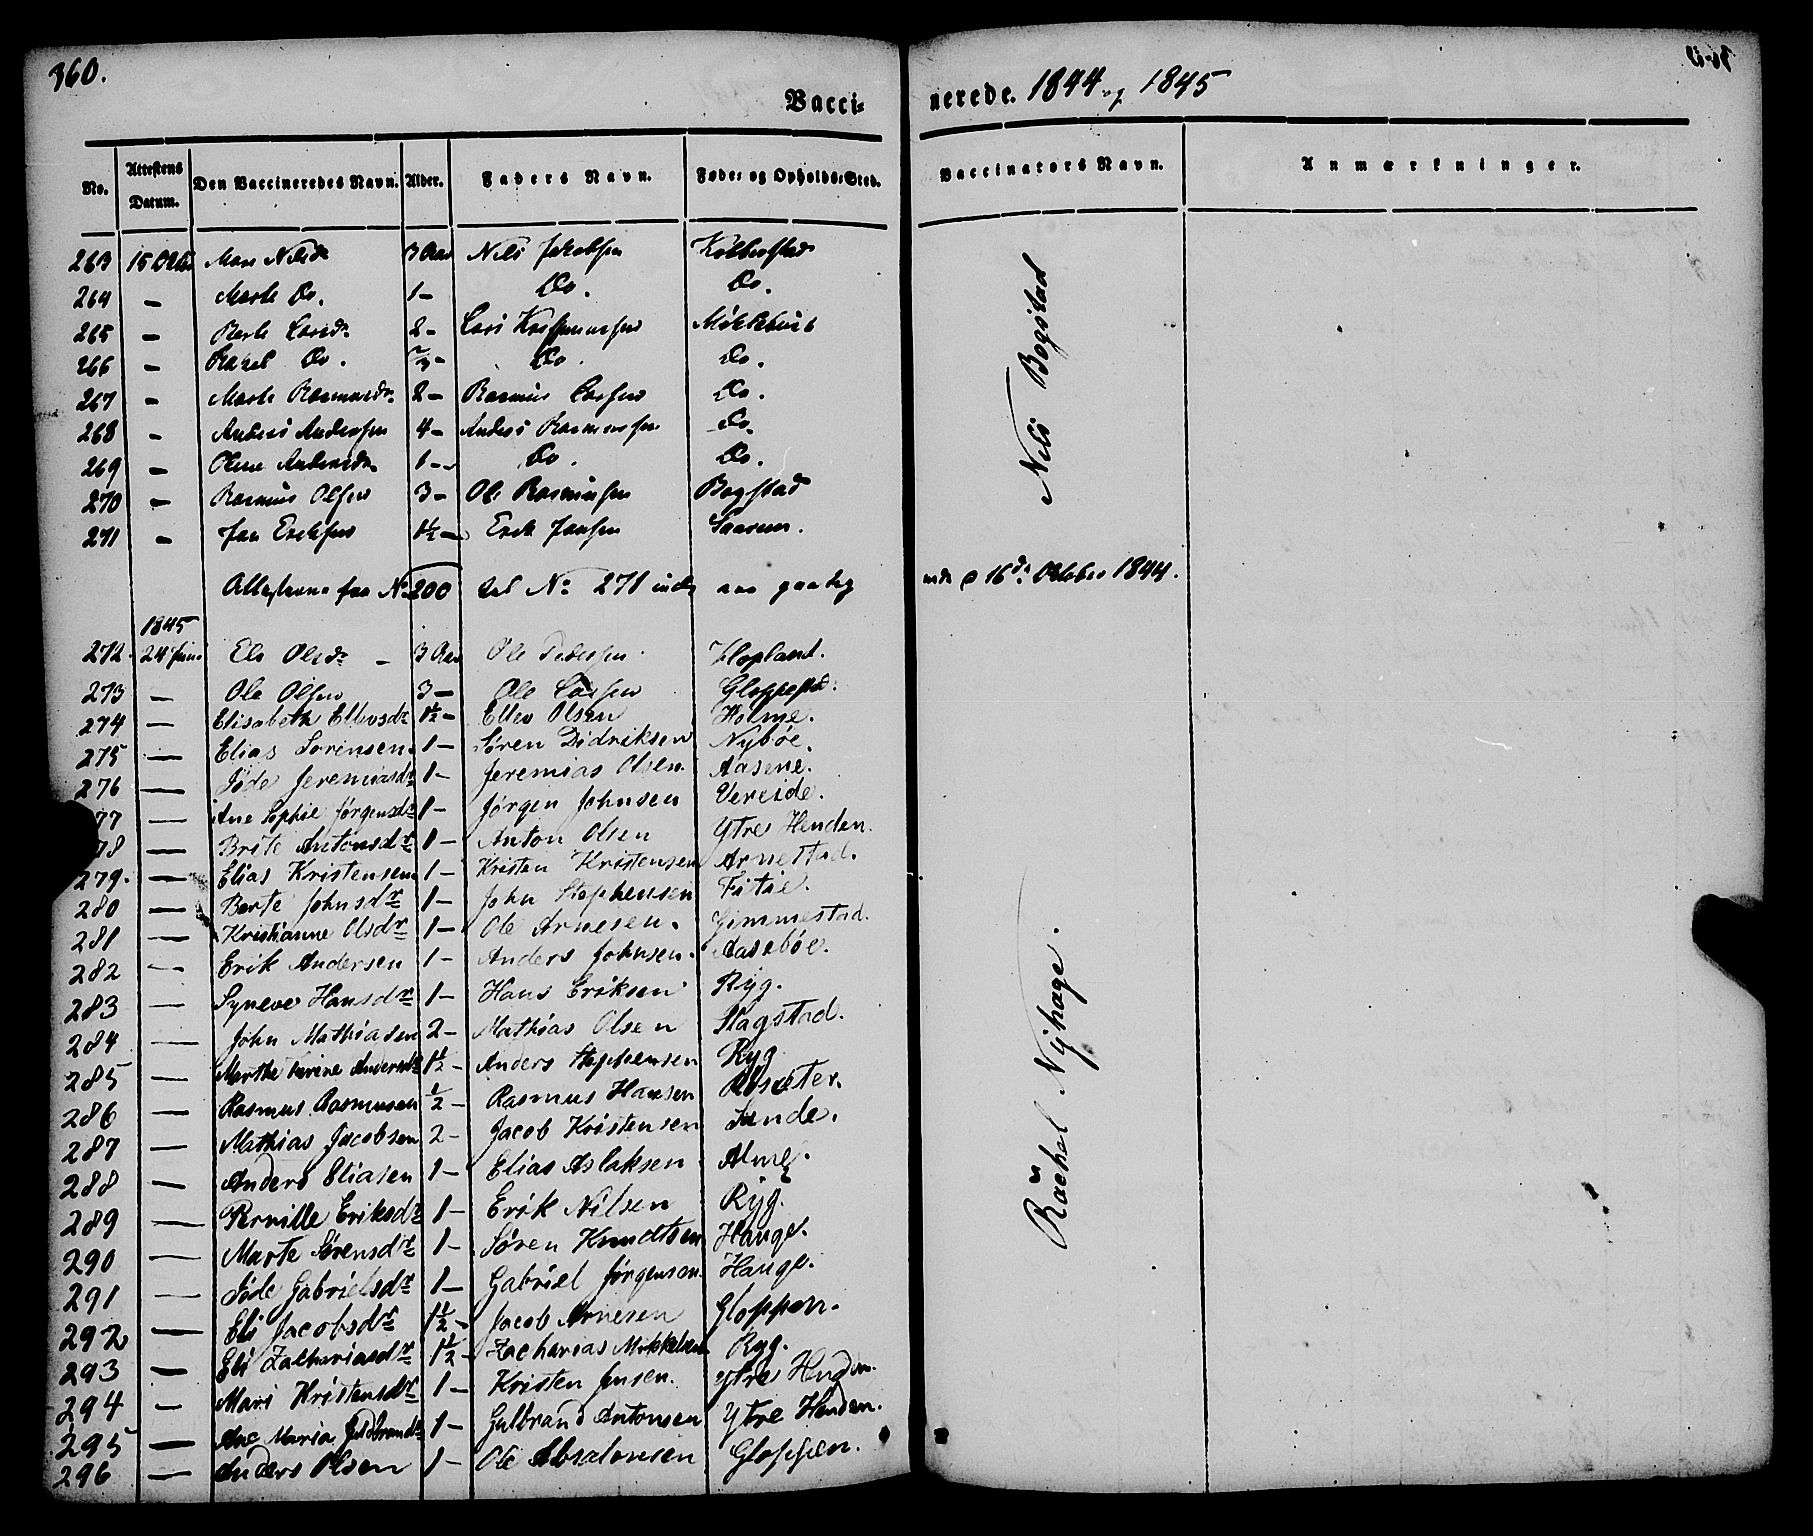 360.
Vacci-
nerede. 1844 og 1845
No. Attestens Datum. Den Vaccineredes Navn. Alder. Faders Navn. Føde- og Opholds-Sted. Vaccinators Navn. Anmærkninger.
263 15 Octb Mari Nilsdr 3 Aar Nils Jakobsen
264 — Marte Do. 1 — Do. Do.
265 — Berte Larsdr 2 — Lars Mÿklebust
266 — Rakel Do. — Do. Do.
267 — Marte Rasmusdr 2 — Rasmus Larsen Do.
268 — Anders Andersen 4 — Anders Rasmussen Do.
269 — Oline Andersdr 1 — Do. Do.
270 — Rasmus Olsen 3 — Ole Rasmusen Bogstad
271 — Jan Eriksen 1½ — Erik Jansen
Nils Bogstad
Attesterne fra No 200 til No 271 16de October 1844.
1845
272 24 Juni Eli Olsdr — 3 Aar Ole Pedersen Hopland.
273 — Ole Olsen 3 — Ole Larsen Gloppestd.
274 — Elisabeth Ellevsdr 1½ — Ellev Olsen Holme.
275 — Elias Sørensen 1 — Søren Didriksen Nybøe.
276 — Jøde Jeremiasdr 1 — Jeremias Olsen Aasene.
277 — Ane Sophie Jørgensdr 1 — Jørgen Johnsen Vereide.
278 — Brite Antonsdr 1 — Anton Olsen Ytre Henden.
279. — Elias Kristensen 1 — Kristen Kristensen Arnestad.
280 — Berte Johnsdr 1 — John Stephensen Fitie.
281 — Kristianne Olsdr 1 — Ole Arnesen. Gimmestad.
282 — Erik Andersen 1 — Anders Johnsen. Aasebøe.
283 — Syneve Hansdr 1 — Hans Eriksen Ryg.
284 — John Mathiasen 2 — Mathias Olsen Hagstad.
285 — Marthe Karine Andersdr 1½ — Anders Stephensen Ryg
286 — Rasmus Rasmusen ½ — Rasmus Hansen Røsæter.
287 — Mathias Jacobsen 2 — Jacob Kristensen Sunde.
288 — Anders Eliasen 1 — Elias Aslaksen
289 — Pernille Eriksdr 1 — Erik Nilsen Ryg.
290 — Marte Sørensdr 1 — Søren Knudtsen Hauge.
291 — Jøde Gabrielsdr 1 — Gabriel Jørgensen Hauge.
292 — Eli Jacobsdr 1½ — Jacob Arnesen Gloppen.
293 — Eli Zachariasdr 1½ — Zacharias Mikkelsen Ryg.
294 — Mari Kristensdr 1 — Kristen Jensen. Ytre Henden.
295 — Ane Maria Gulbrandsdr 1 — Gulbrand Antonsen Ytre Henden.
296 — Anders Olsen 1 — Ole Absalonsen Gloppen.
Rachel Nÿhage.